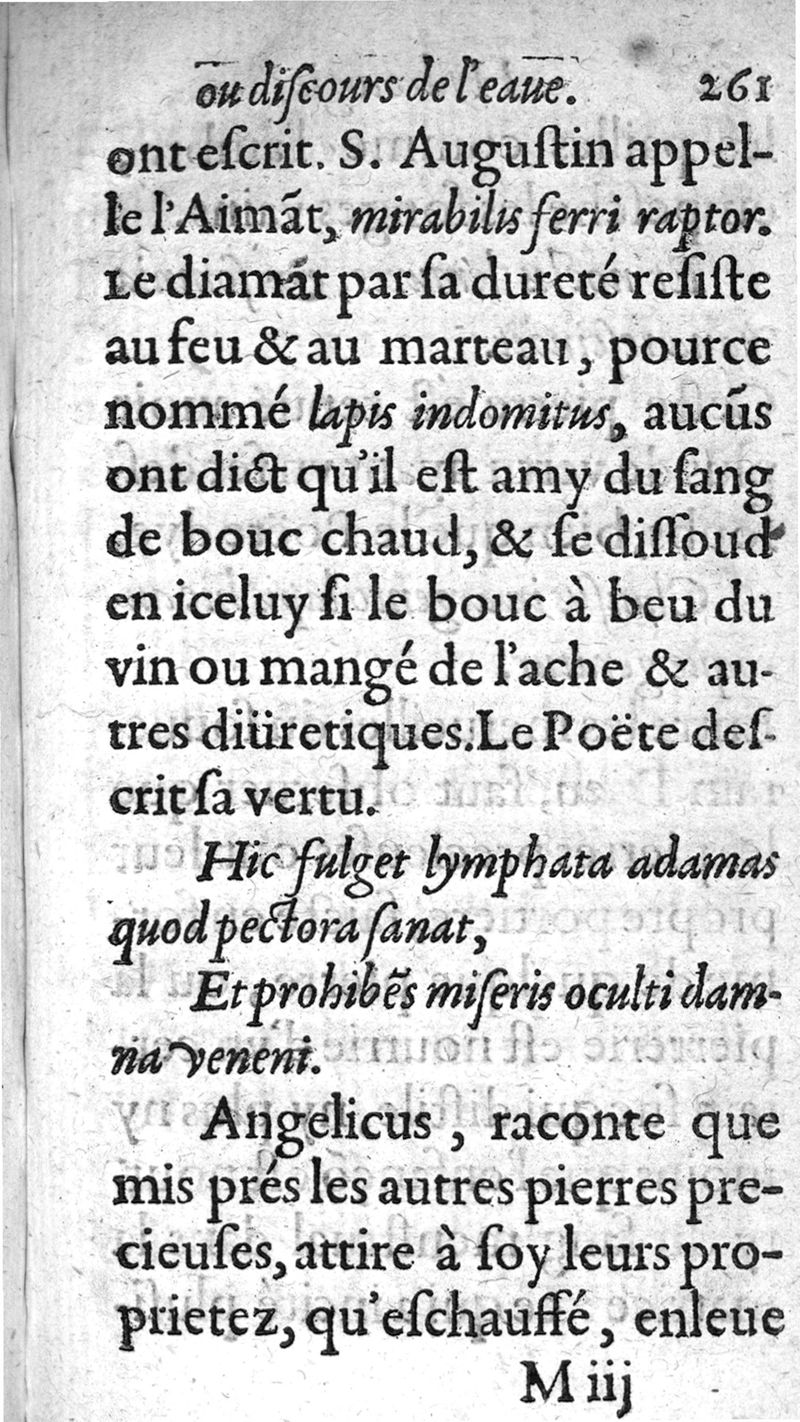 ou diſcours de l'eaue. 261
ont eſcrit. S. Auguſtin appel-
le l'Aimãt, mirabilis ferri raptor.
Le diamãt par ſa dureté reſiſte
au feu & au marteau, pource
nommé lapis indomitus, aucũs
ont dict qu'il eſt amy du ſang
de bouc chaud, & ſe diſſoud
en iceluy ſi le bouc à beu du
vin ou mangé de l'ache & au-
tres diüretiques. Le Poëte deſ-
crit ſa vertu.
Hic fulget lymphata adamas
quod pectora ſanat,
Et prohibẽs miſeris oculti dam-
na veneni.
Angelicus, raconte que
mis prés les autres pierres pre-
cieuſes, attire à ſoy leurs pro-
prietez, qu'eſchauffé, enleue
M iij